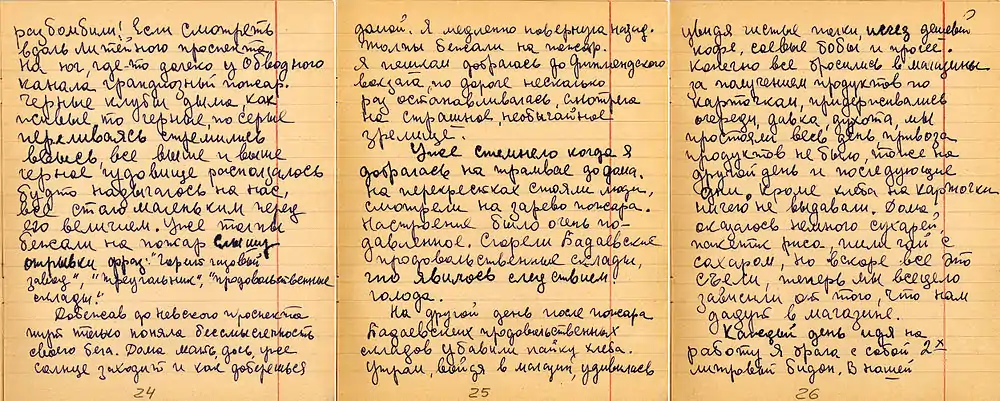 разбомбили! Если смотреть
вдоль Литейного проспекта
на юг, где-то далеко у Обводного
канала грандиозный пожар.
Черные клубы дыма как
живые то черные, то серые
переливаясь стремились
ввысь, все выше и выше
черное чудовище расползалось
будто надвигалось на нас,
все стало маленьким перед
его величием. Уже толпы
бежали на пожар слышу
отрывки фраз: "горит газовый
завод", "треугольник", "продовольственные
склады."
Добежав до Невского проспекта
тут только поняла бессмысленность
своего бега. Дома мать, дочь, уже
солнце заходит и как доберешься
24
домой. Я медленно повернула назад.
Толпы бежали на пожар.
Я пешком добралась до Финляндского
вокзала, по дороге несколько
раз останавливалась, смотрела
на страшное, необычайное
зрелище.
Уже стемнело когда я
добралась на трамвае до дома.
На перекрестках стояли люди,
смотрели на зарево пожара.
Настроение было очень по-
давленное. Сгорели Бадаевские
продовольственные склады,
что явилось следствием
голода.
На другой день после пожара
Бадаевских продовольственных
складов убавили пайку хлеба.
Утром, войдя в магазин, удивилась
25
увидя чистые полки, исчез дешевый
кофе, соевые бобы и прочее.
Конечно все бросились в магазины
за получением продуктов по
карточкам, придерживались
очереди, давка, духота, мы
простояли весь день, привоза
продуктов не было, тоже на
другой день и последующие
дни, кроме хлеба по карточкам
ничего не выдавали. Дома
оказалось немного сухарей,
пакетик риса, пили чай с
сахаром, но вскоре все это
съели, теперь мы всецело
зависили от того, что нам
дадут в магазине.
Каждый день идя на
работу я брала с собой 2х
литровый бидон. В нашей
26